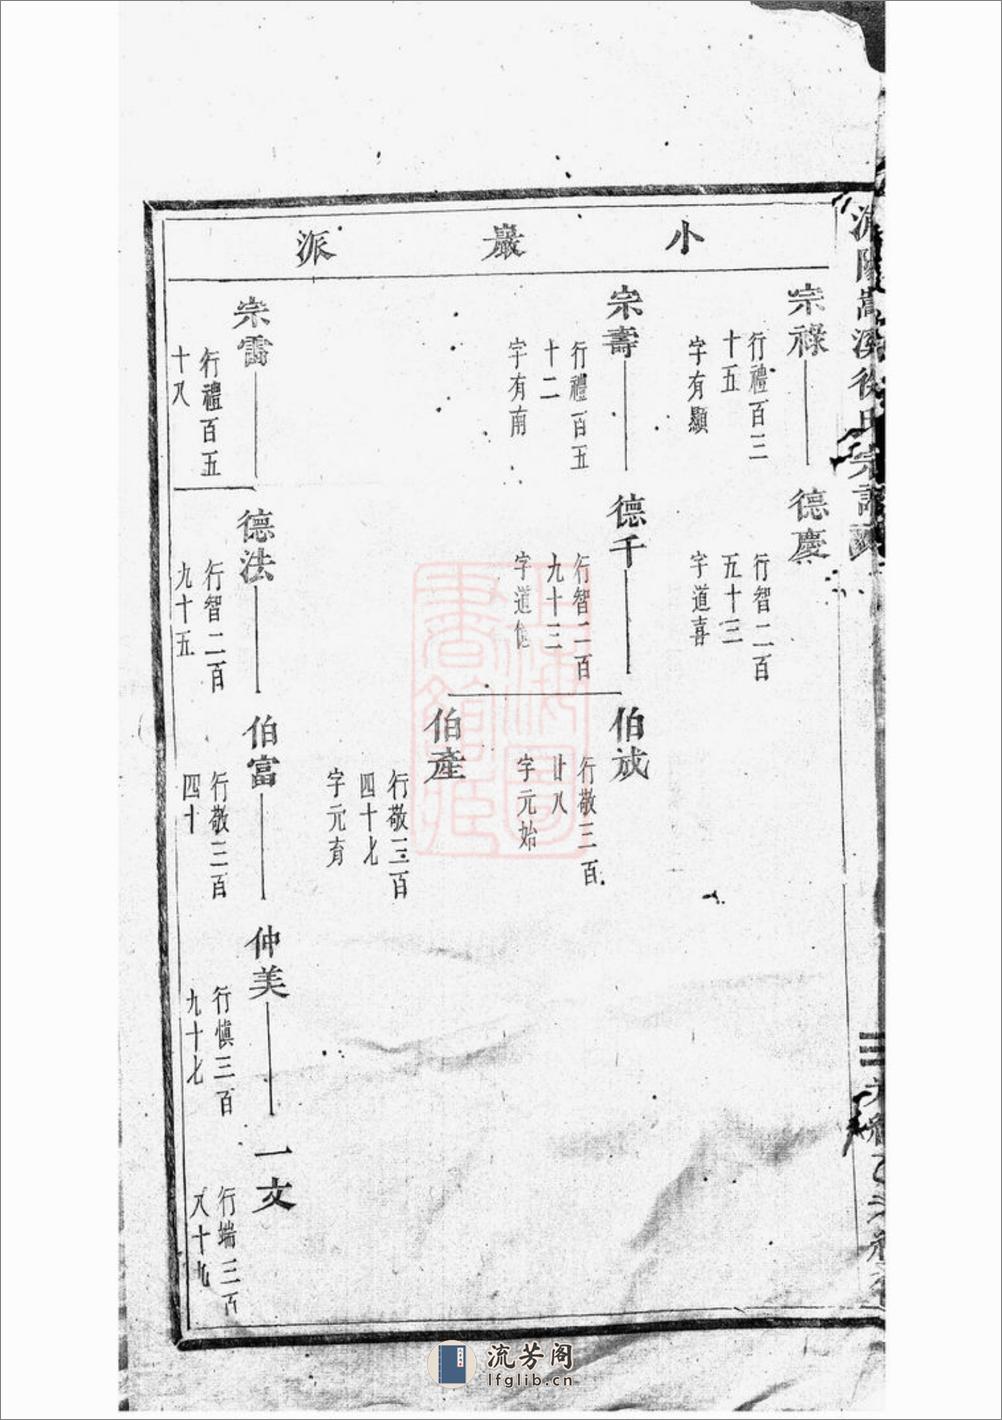 浦陽嵩溪徐氏宗譜
小巖派
宗祿
行禮百三
十五
字有顯
德慶
行智二百
五十三
字道喜
宗壽
行禮百五
十二
字有南
德千
行智二百
九十三
字道
伯成
行敬三百
廿八
字元始
伯產
行敬三百
四十七
字元育
宗雷
行禮百五
十八
德法
行智二百
九十五
伯富
行敬三百
四十
仲美
行慎三百
九十七
一文
行端三百
八十九
上海圖
書館藏
流芳阁
lfglib.cn